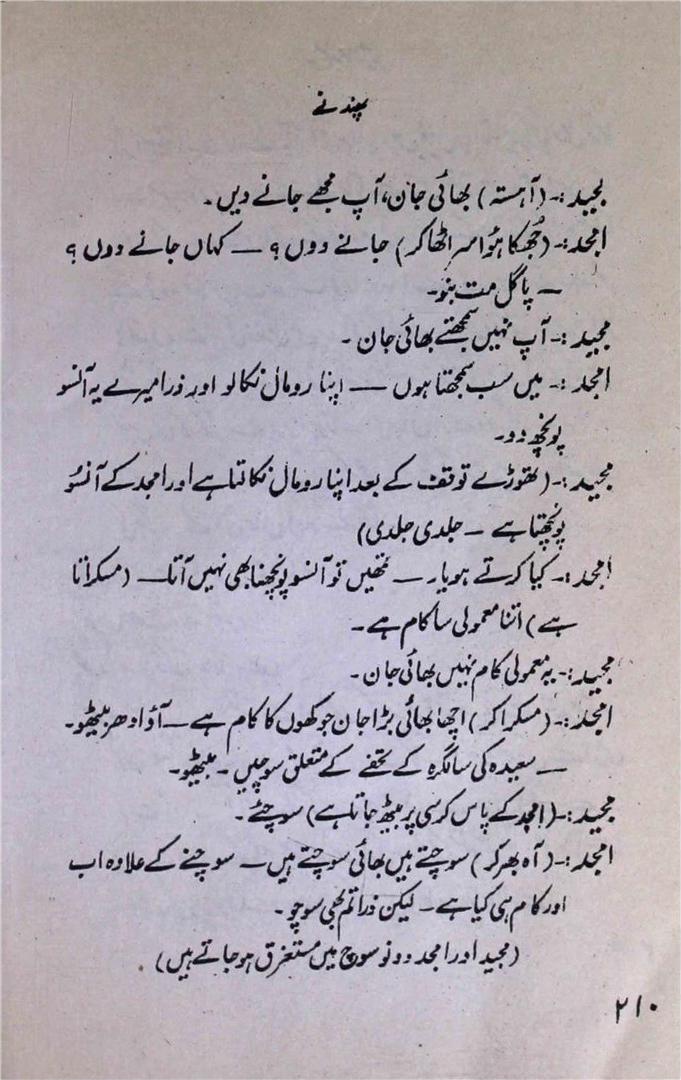 پھندنے
مجید:۔ (آہستہ) بھائی جان، آپ مجھے جانے دیں۔
امجد:۔ (جُھکا ہُوا سر اٹھا کر) جانے دوں؟ — کہاں جانے دوں؟
— پاگل مت بنو۔
مجید:۔ آپ نہیں سمجھتے بھائی جان۔
امجد:۔ میں سب سمجھتا ہوں — اپنا رومال نکالو اور ذرا میرے یہ آنسو
پونچھ دو۔
مجید:۔ (تھوڑے توقف کے بعد اپنا رومال نکالتا ہے اور امجد کے آنسُو
پونچھتا ہے ۔ جلدی جلدی)
امجد:۔ کیا کرتے ہو یار — تمھیں تو آنسو پونچھنا بھی نہیں آتا — (مسکراتا
ہے) اتنا معمولی سا کام ہے۔
مجید:۔ یہ معمولی کام نہیں بھائی جان۔
امجد:۔ (مسکرا کر) اچھا بھائی بڑا جان جوکھوں کا کام ہے — آؤ ادھر بیٹھو۔
— سعیدہ کی سالگرہ کے تحفے کے متعلق سوچیں ۔ بیٹھو۔
مجید:۔ (امجد کے پاس کرسی پر بیٹھ جاتا ہے) سوچئے۔
امجد:۔ (آہ بھر کر) سوچتے ہیں بھائی سوچتے ہیں — سوچنے کے علاوہ اب
اور کام ہی کیا ہے ۔ لیکن ذرا تم بھی سوچو۔
(مجید اور امجد دونو سوچ میں مستغرق ہو جاتے ہیں)
۲۱۰